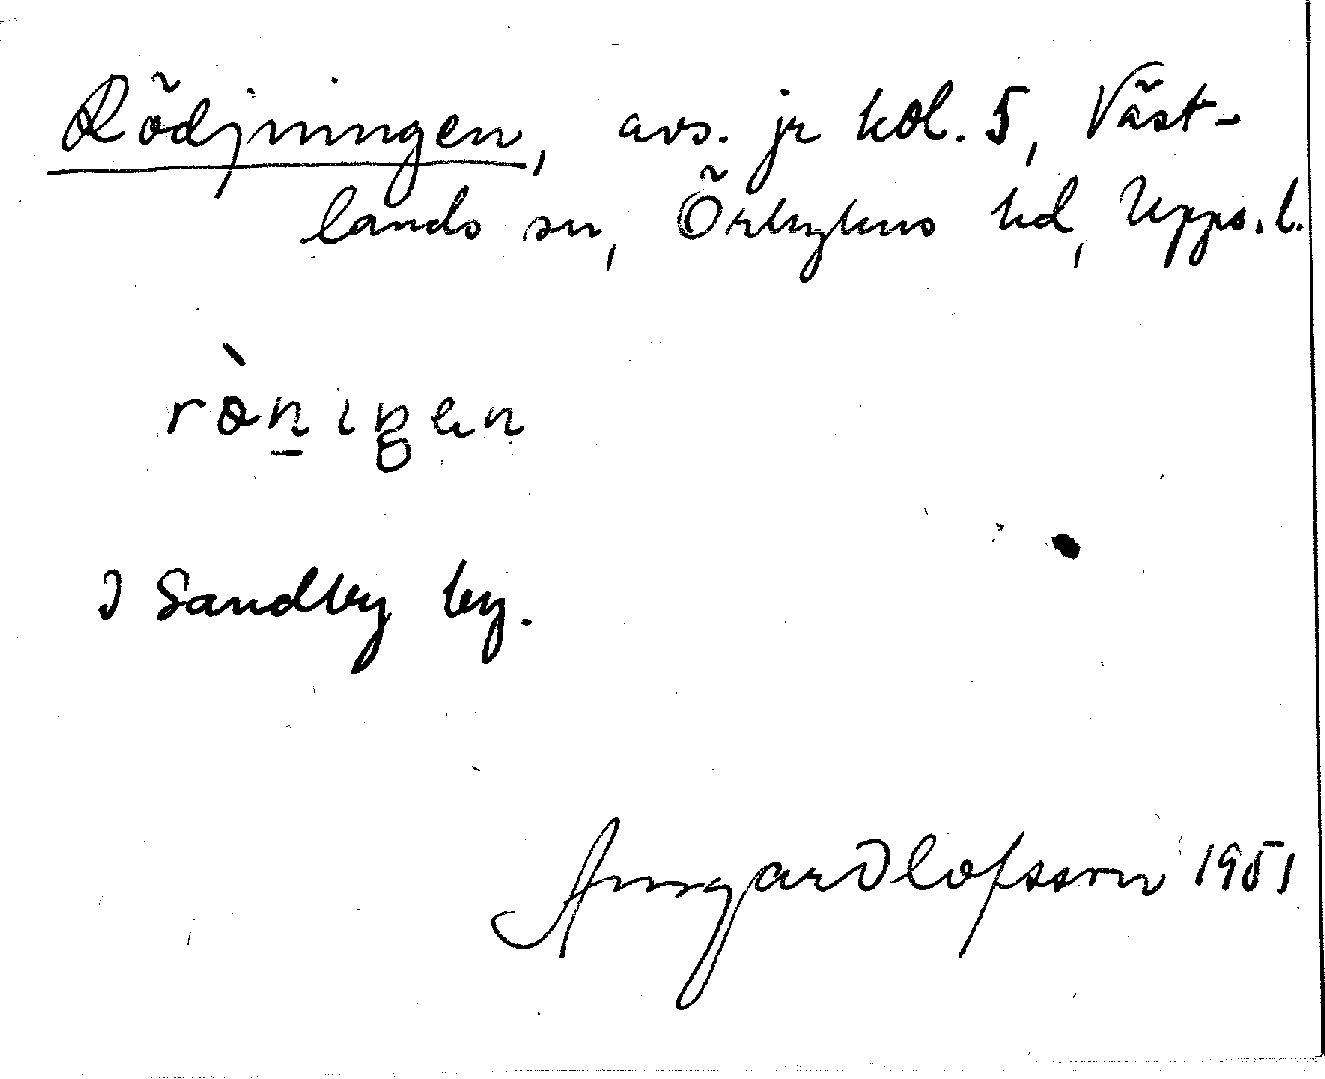 Rödjningen, avs. jr kol. 5, Väst-
lands sn, Örbyhus hd, Upps. l.
I Sandby by.
Olofsson 1951